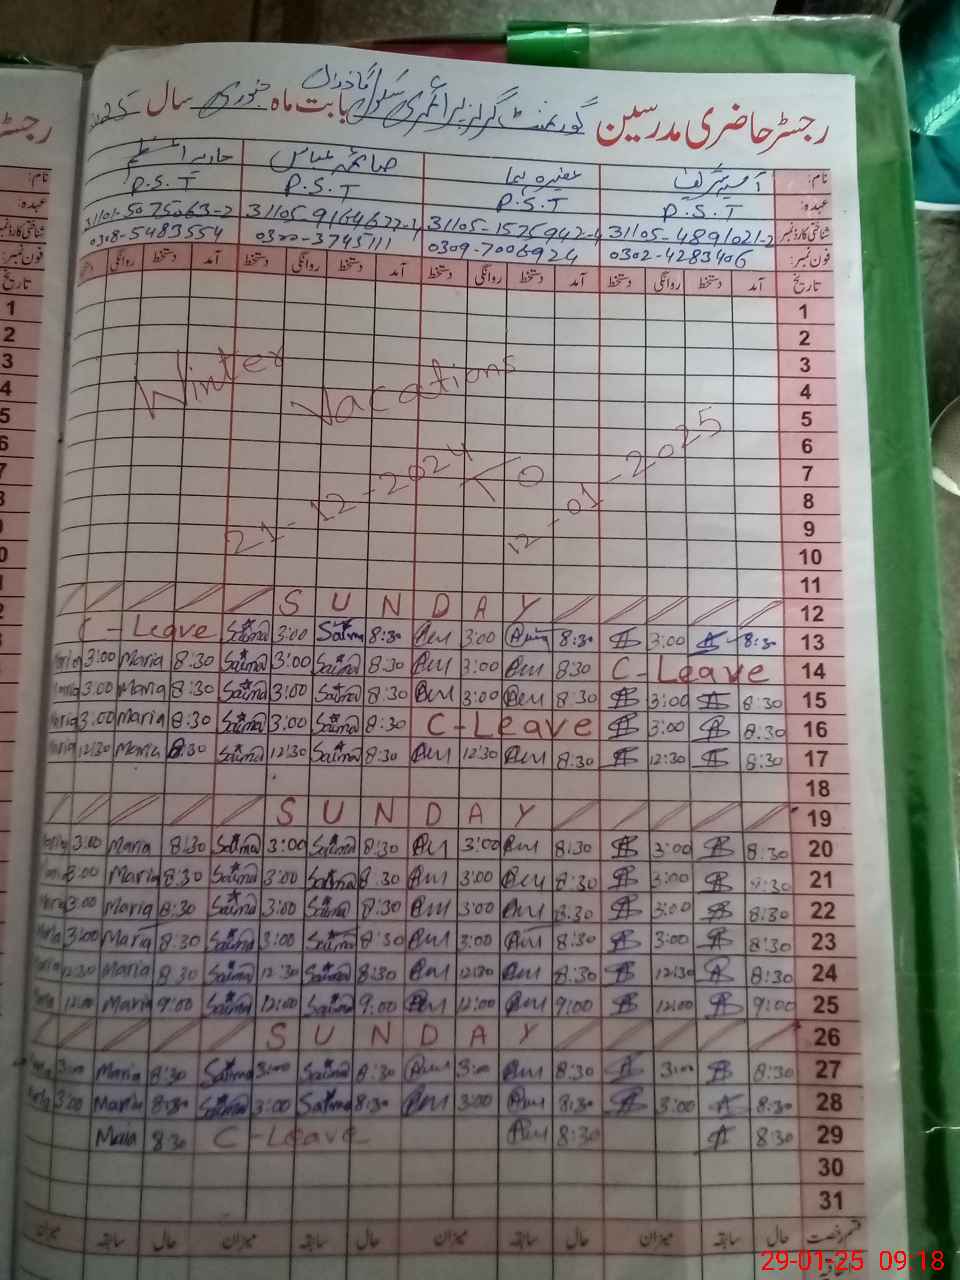 رجسٹر حاضری مدرسین گورنمنٹ گرلز پرائمری سکول بابت ماہ جنوری سال 2025
نام: آسیہ شریف صائمہ عباس
عہدہ: P.S.T P.S.T P.S.T P.S.T
شناختی کارڈ نمبر 31105-4891021-2 31105-1525942-4 31105-9164677-1 31101-5075063-2
فون نمبر: 0302-4283406 0309-7006924 0300-3745111 0308-5483554
تاریخ آمد دستخط روانگی دستخط آمد دستخط روانگی دستخط آمد دستخط روانگی دستخط آمد دستخط روانگی
1
2
3
4
5
6
7
8
9
10
11
Winter Vacations
21-12-2024 To 12-01-2025
SUNDAY 12
C-Leave Saima 3:00 Saima 8:30 3:00 8:30 3:00 8:30 13
Maria 3:00 Maria 8:30 Saima 3:00 Saima 8:30 3:00 8:30 C-Leave 14
Maria 3:00 Maria 8:30 Saima 3:00 Saima 8:30 3:00 8:30 3:00 8:30 15
Maria 3:00 Maria 8:30 Saima 3:00 Saima 8:30 C-Leave 3:00 8:30 16
Maria 12:30 Maria 8:30 Saima 12:30 Saima 8:30 12:30 8:30 12:30 8:30 17
18
SUNDAY 19
Maria 3:00 Maria 8:30 Saima 3:00 Saima 8:30 3:00 8:30 3:00 8:30 20
3:00 Maria 8:30 Saima 3:00 Saima 8:30 3:00 8:30 3:00 8:30 21
Maria 3:00 Maria 8:30 Saima 3:00 Saima 8:30 3:00 8:30 3:00 8:30 22
Maria 3:00 Maria 8:30 Saima 3:00 Saima 8:30 3:00 8:30 3:00 8:30 23
Maria 12:30 Maria 8:30 Saima 12:30 Saima 8:30 12:30 8:30 12:30 8:30 24
Maria 12:00 Maria 9:00 Saima 12:00 Saima 9:00 12:00 9:00 12:00 9:00 25
SUNDAY 26
3:00 Maria 8:30 Saima 3:00 Saima 8:30 3:00 8:30 3:00 8:30 27
Maria 3:00 Maria 8:30 Saima 3:00 Saima 8:30 3:00 8:30 3:00 8:30 28
Maia 8:30 C-Leave 8:30 8:30 29
30
31
قسم رخصت حال سابقہ میزان حال سابقہ میزان حال سابقہ میزان حال سابقہ میزان
29-01-25 09:18